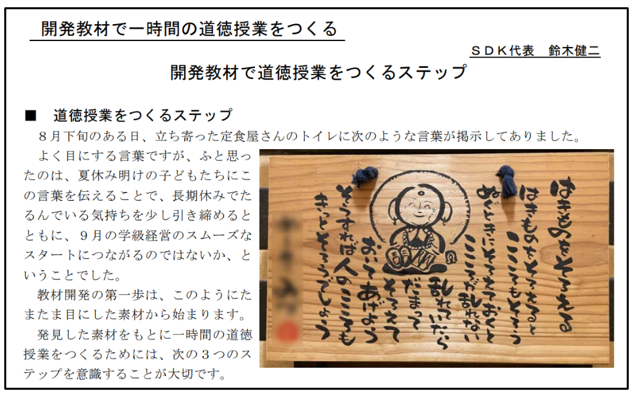 開発教材で一時間の道徳授業をつくる
SDK代表　鈴木健二
開発教材で道徳授業をつくるステップ
■　道徳授業をつくるステップ
８月下旬のある日、立ち寄った定食屋さんのトイレに次のような言葉が掲示してありました。
よく目にする言葉ですが、ふと思っ
たのは、夏休み明けの子どもたちにこ
の言葉を伝えることで、長期休みでた
るんでいる気持ちを少し引き締めると
ともに、９月の学級経営のスムーズな
スタートにつながるのではないか、と
いうことでした。
教材開発の第一歩は、このようにた
またま目にした素材から始まります。
発見した素材をもとに一時間の道徳
授業をつくるためには、次の３つのス
テップを意識することが大切です。
はきものをそろえる
はきものをそろえると
こころもそろう
ぬぐときにそろえておくと
こころが乱れない
乱れていたら
だまって
そろえて
おいてあげよう
そうすれば人のこころも
きっとそろうでしょう